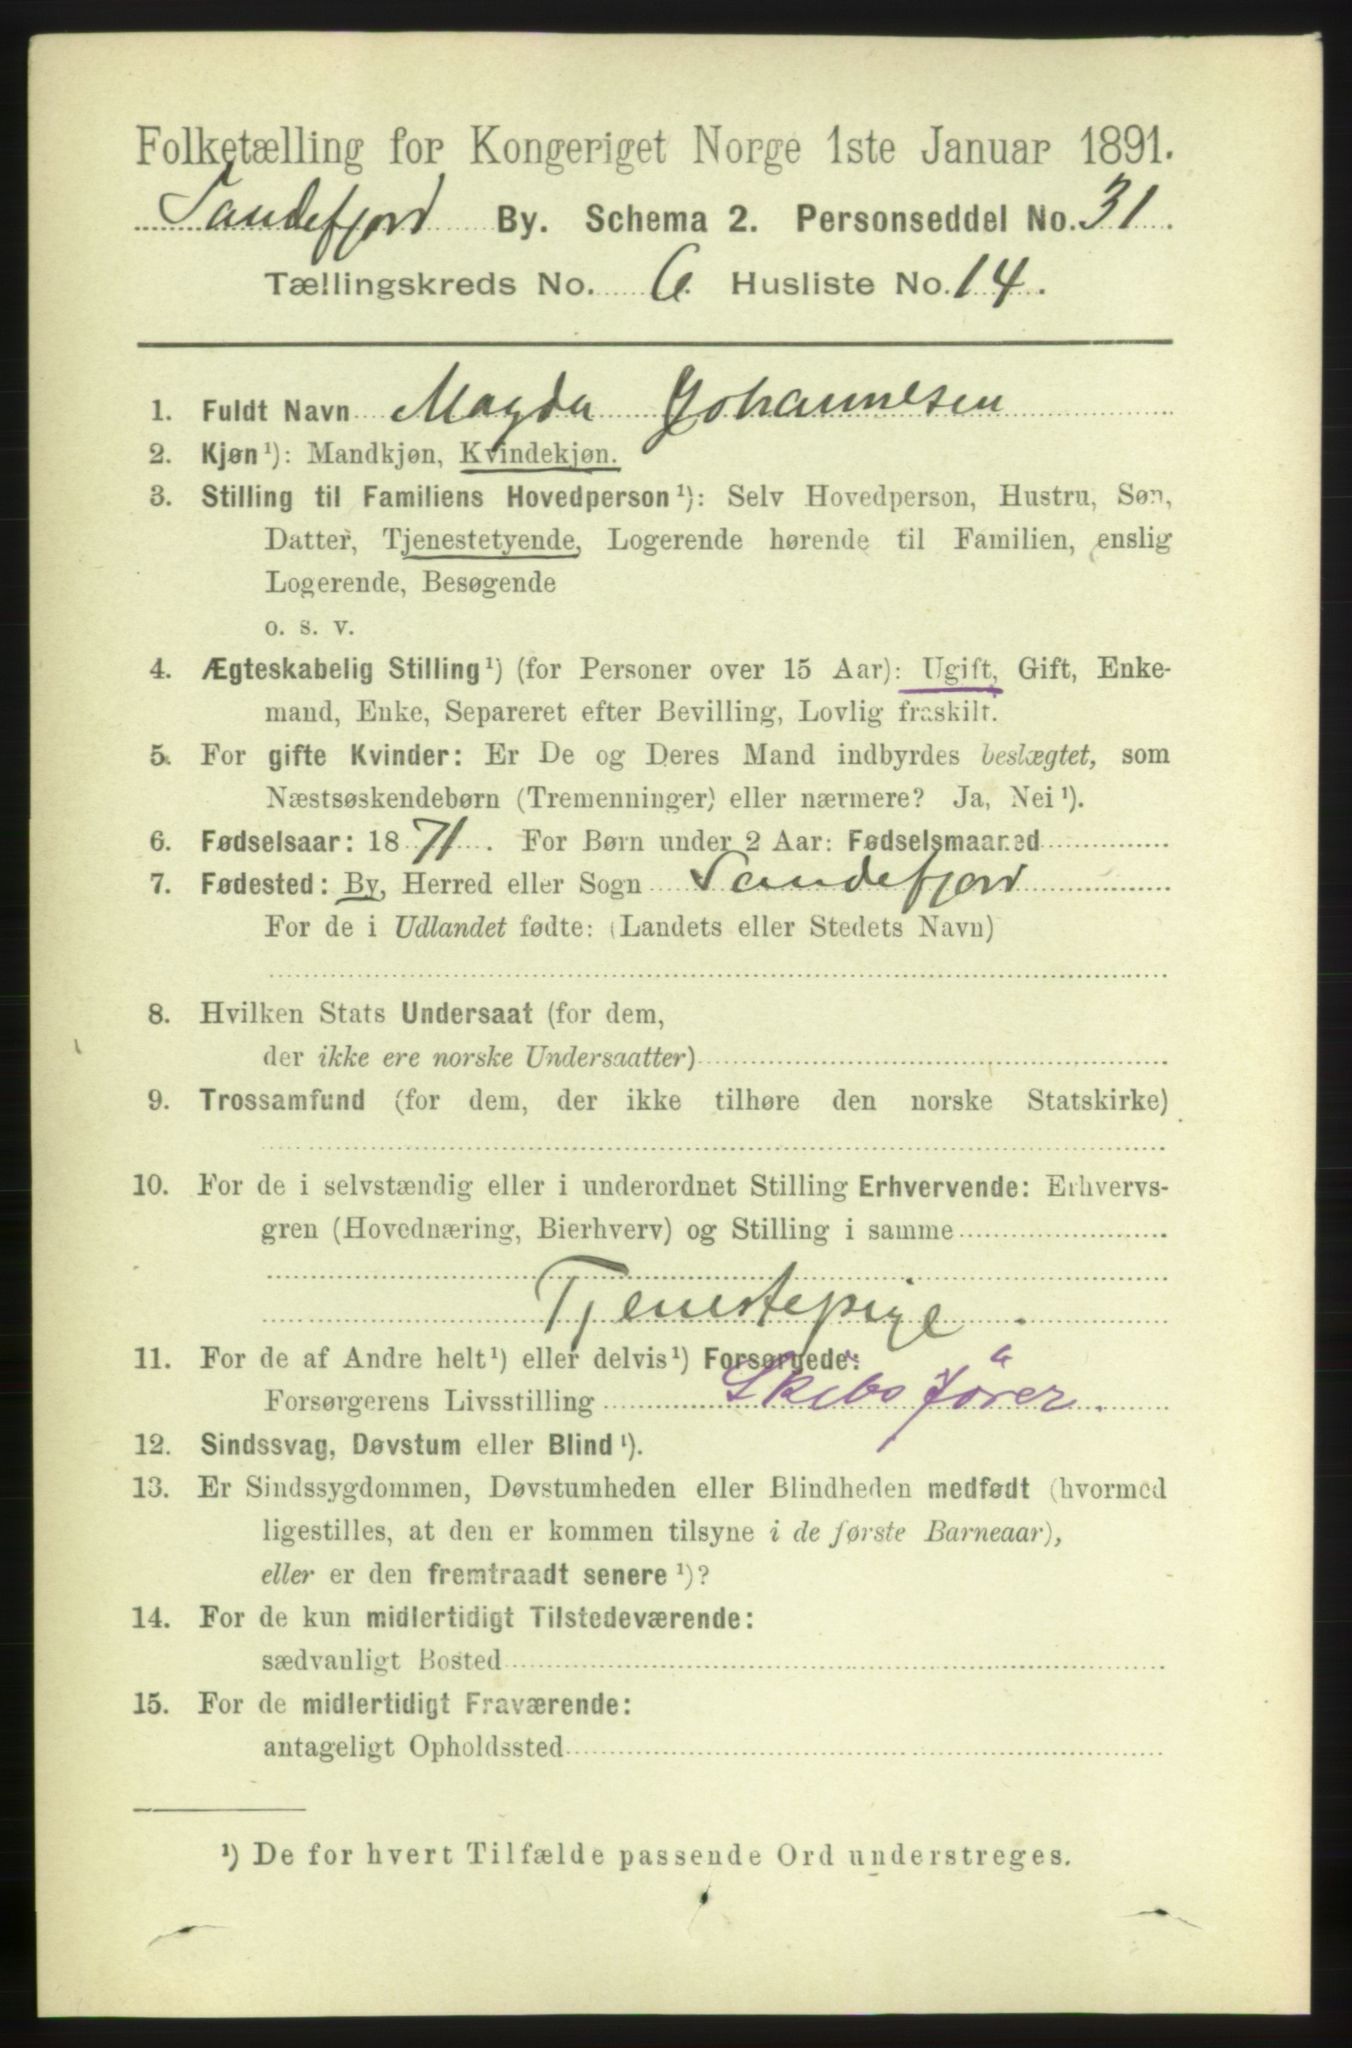 Folketælling for Kongeriget Norge 1ste Januar 1891.
Sandefjord By. Schema 2. Personseddel No. 31.
Tællingskreds No. 6. Husliste No. 14.
1. Fuldt Navn Magda Johannesen
2. Kjøn ¹): Mandkjøn, Kvindekjøn.
3. Stilling til Familiens Hovedperson ¹): Selv Hovedperson, Hustru, Søn,
Datter, Tjenestetyende, Logerende hørende til Familien, enslig
Logerende, Besøgende
o. s. v.
4. Ægteskabelig Stilling ¹) (for Personer over 15 Aar): Ugift, Gift, Enke-
mand, Enke, Separeret efter Bevilling, Lovlig fraskilt.
5. For gifte Kvinder: Er De og Deres Mand indbyrdes beslægtet, som
Næstsøskendebørn (Tremenninger) eller nærmere? Ja, Nei ¹).
6. Fødselsaar: 1871. For Børn under 2 Aar: Fødselsmaaned
7. Fødested: By, Herred eller Sogn Sandefjord
For de i Udlandet fødte: (Landets eller Stedets Navn)
8. Hvilken Stats Undersaat (for dem,
der ikke ere norske Undersaatter)
9. Trossamfund (for dem, der ikke tilhøre den norske Statskirke)
10. For de i selvstændig eller i underordnet Stilling Erhvervende: Erhvervs-
gren (Hovednæring, Bierhverv) og Stilling i samme
Tjenestepige.
11. For de af Andre helt ¹) eller delvis ¹) Forsørgede:
Forsørgerens Livsstilling Skibsfører.
12. Sindssvag, Døvstum eller Blind ¹).
13. Er Sindssygdommen, Døvstumheden eller Blindheden medfødt (hvormed
ligestilles, at den er kommen tilsyne i de første Barneaar),
eller er den fremtraadt senere ¹)?
14. For de kun midlertidigt Tilstedeværende:
sædvanligt Bosted
15. For de midlertidigt Fraværende:
antageligt Opholdssted
¹) De for hvert Tilfælde passende Ord understreges.